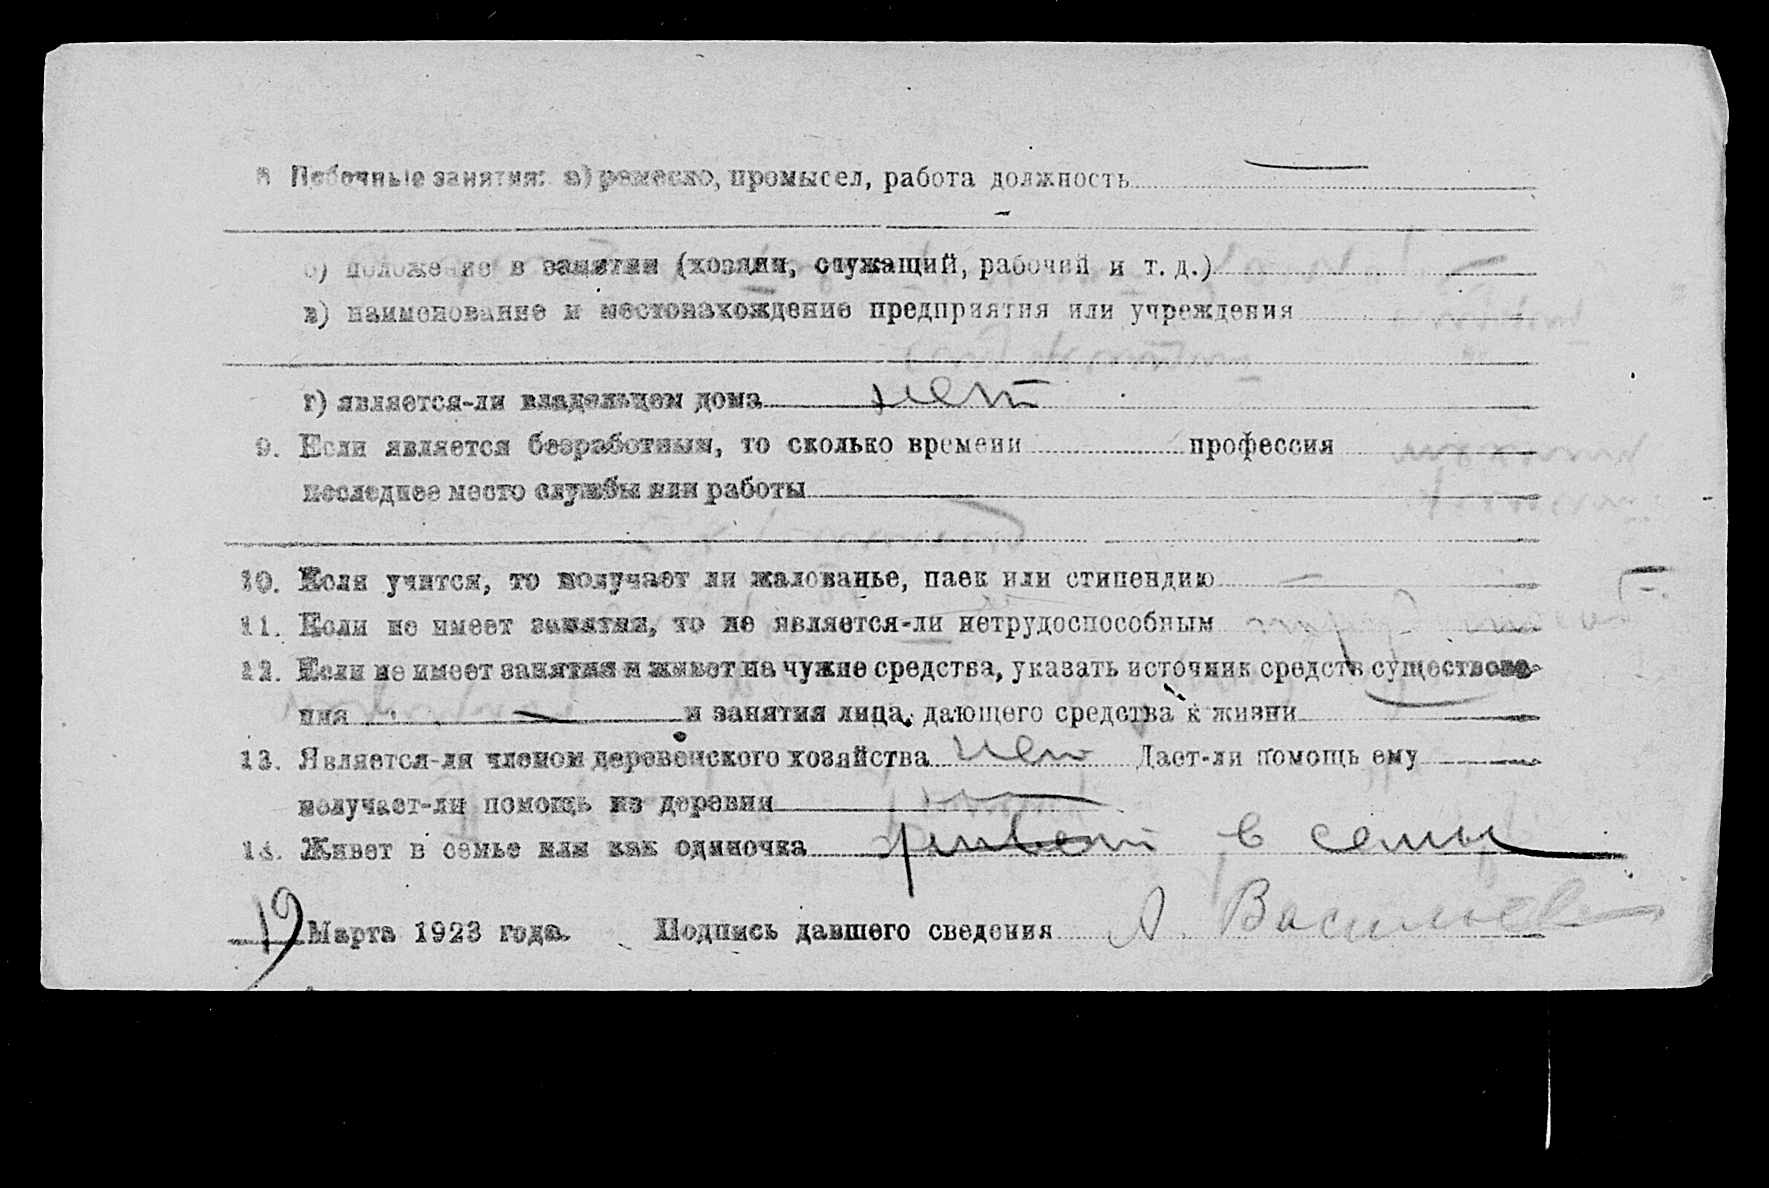 8 Побочные занятия: а) ремесло, промысел, работа должность —
б) положение в занятии (хозяин, служащий, рабочий и т. д.) —
в) наименование и местонахождение предприятия или учреждения
г) является-ли владельцем дома нет
9. Если является безработным, то сколько времени профессия
последнее место службы или работы
10. Если учится, то получает ли жалованье, паек или стипендию —
11. Если не имеет занятия, то не является-ли нетрудоспособным
12. Если не имеет занятия и живет на чужие средства, указать источник средств существова-
ния — и занятия лица, дающего средства к жизни
13. Является-ли членом деревенского хозяйства нет Дает-ли помощь ему
получает-ли помощь из деревни —
14. Живет в семье или как одиночка живет в семьи
19 Марта 1923 года. Подпись давшего сведения А. Васильев